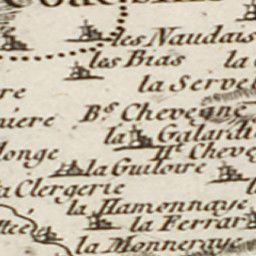 les Naudais
les Bias
la
la Serve
re
Bs. Chevegne
niere
la Galardi
longe
He. Cheve
la Guiloire
la Clergerie
la Hamonnaye
la Ferrar
ttée
la Monneraye